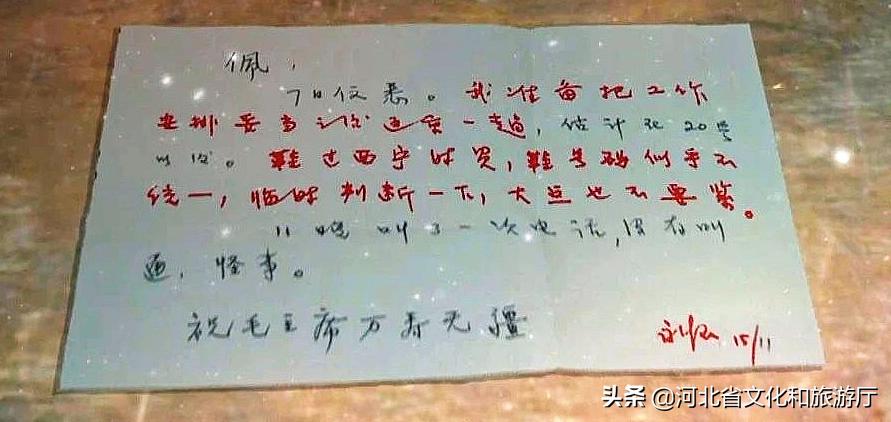 佩，
7日信悉。我准备把工作
安排妥当以后返京一趟，估计在20号
以后。鞋过西宁时买，鞋号码似乎不
统一，临时判断一下，大点也不要紧。
11晚叫了一次电话，没有叫
通，怪事。
祝毛主席万寿无疆
永怀 15/11
头条 @河北省文化和旅游厅